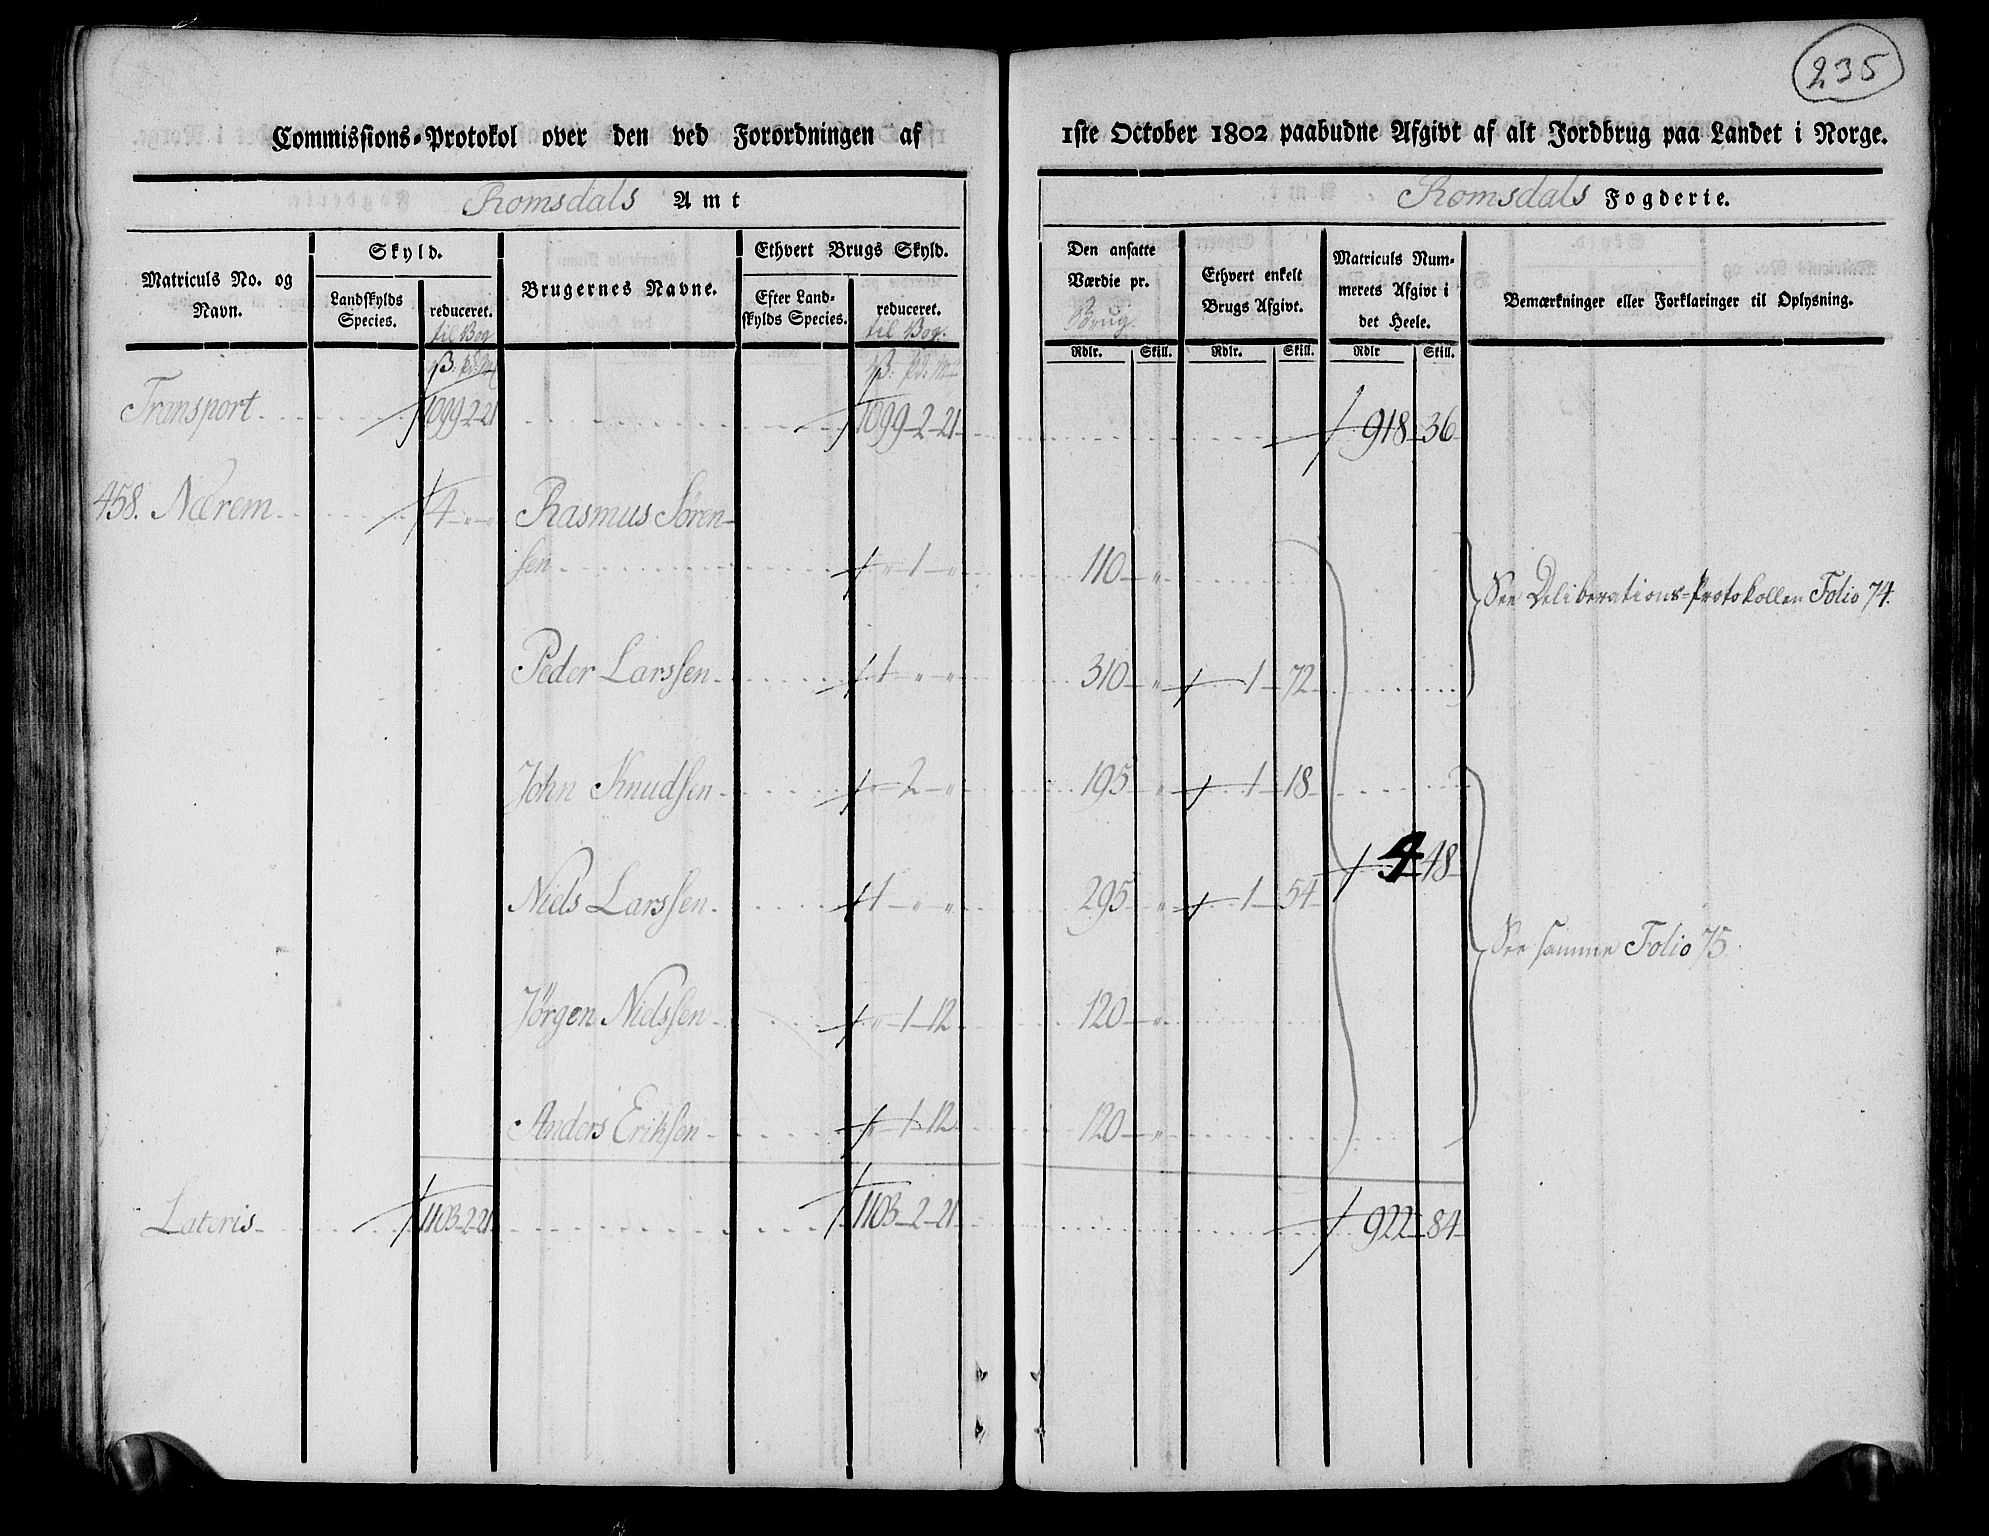 235
Commissions-Protokol over den ved Forordningen af 1ste October 1802 paabudne Afgivt af alt Jordbrug paa Landet i Norge.
Romsdals Amt
Romsdals Fogderie.
Matriculs No. og Navn.
Skyld.
Landskylds Species.
reduceret.
til Bog
Brugernes Navne.
Ethvert Brugs Skyld.
Efter Landskylds Species.
reduceret.
til Bog.
Den ansatte Værdie pr.
Brug.
Ethvert enkelt Brugs Afgivt.
Matriculs Nummerets Afgivt i det Heele.
Bemærkninger eller Forklaringer til Oplysning.
Rdlr. Skill. Rdlr. Skill. Rdlr Skill.
Transport 1099-2-21 1099-2-21 918-36
458. Nærem 4 " " Rasmus Søren-
sen " 1 " 110 "
See Deliberations-Protokollen Folio 74.
Peder Larssen 1 " " 310 " 1-72
John Knudsen " 2 " 195 " 1-18
4 48
Niels Larssen 1 " " 295 " 1-54
See samme Folio 75
Jörgen Nielssen " 1-12 120 "
Anders Eriksen " 1-12 120 "
Lateris 1103-2-21 1103-2-21 922-84